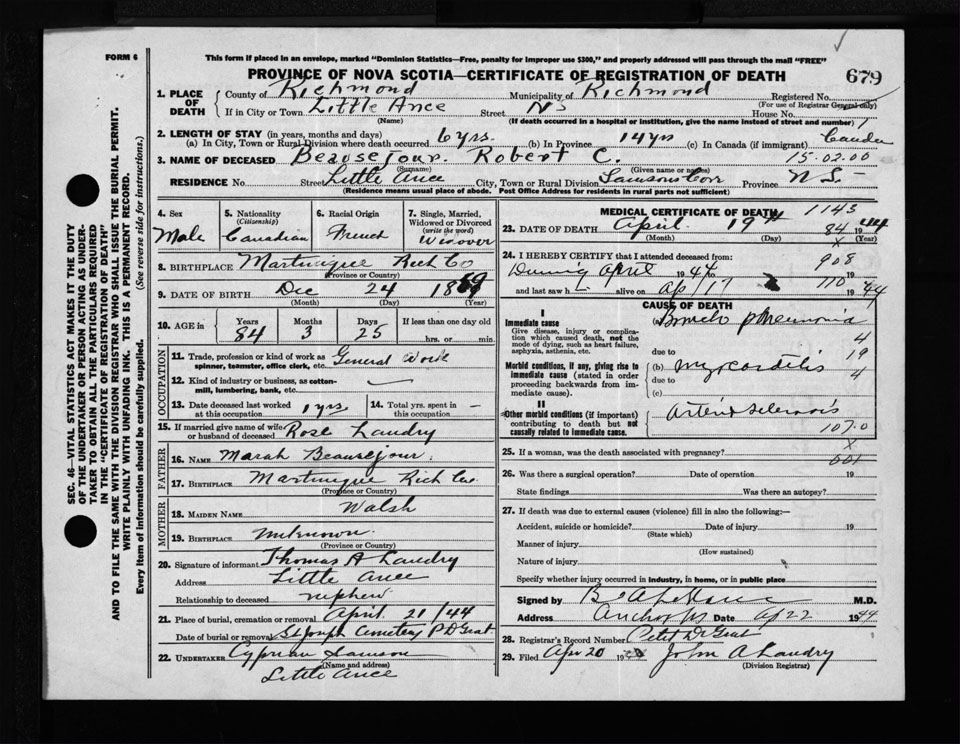 FORM 6
This form if placed in an envelope, marked "Dominion Statistics—Free, penalty for improper use $300," and properly addressed will pass through the mail "FREE"
PROVINCE OF NOVA SCOTIA—CERTIFICATE OF REGISTRATION OF DEATH
679
1. PLACE OF DEATH
County of Richmond Municipality of Richmond Registered No.
(For use of Registrar General only)
If in City or Town Little Ance Street NS House No.
(Name) (If death occurred in a hospital or institution, give the name instead of street and number)
2. LENGTH OF STAY (in years, months and days)
(a) In City, Town or Rural Division where death occurred 6 yrs. (b) In Province 14 yrs (c) In Canada (if immigrant)
3. NAME OF DECEASED Beausejour. Robert C. 15.02.00
(Surname) (Given name or names)
RESIDENCE No. Street Little Ance City, Town or Rural Division Samsons Cove Province N S.
(Residence means usual place of abode. Post Office Address for residents in rural parts not sufficient)
4. Sex Male
5. Nationality (Citizenship) Canadian
6. Racial Origin French
7. Single, Married, Widowed or Divorced (write the word) Widower
8. BIRTHPLACE Martinique Rich Co
(Province or Country)
9. DATE OF BIRTH Dec 24 1859
(Month) (Day) (Year)
10. AGE in Years 84 Months 3 Days 25 If less than one day old hrs. or min.
OCCUPATION
11. Trade, profession or kind of work as spinner, teamster, office clerk, etc. General Work
12. Kind of industry or business, as cotton-mill, lumbering, bank, etc.
13. Date deceased last worked at this occupation 1 yrs 14. Total yrs. spent in this occupation —
15. If married give name of wife or husband of deceased Rose Landry
FATHER
16. NAME Marah Beausejour
17. BIRTHPLACE Martinique Rich Co.
(Province or Country)
MOTHER
18. MAIDEN NAME Walsh
19. BIRTHPLACE unknown
(Province or Country)
20. Signature of informant Thomas A Landry
Address Little Ance
Relationship to deceased nephew
21. Place of burial, cremation or removal April 21/44
Date of burial or removal St Joseph Cemetery P D Grat
22. UNDERTAKER Cyprian Samson
(Name and address)
Little Ance
MEDICAL CERTIFICATE OF DEATH 1143
23. DATE OF DEATH April 19th 84 1944
(Month) (Day) x (Year)
24. I HEREBY CERTIFY that I attended deceased from:
During April 1944 to 908 19
and last saw h alive on Ap/17 110 1944
CAUSE OF DEATH
I
Immediate cause (a) Broncho pneumonia
Give disease, injury or complication which caused death, not the mode of dying, such as heart failure, asphyxia, asthenia, etc.
due to 4
19
Morbid conditions, if any, giving rise to immediate cause (stated in order proceeding backwards from immediate cause).
(b) myocarditis 4
due to
(c)
II
Other morbid conditions (if important) contributing to death but not causally related to immediate cause.
Arterio sclerosis
107.0
25. If a woman, was the death associated with pregnancy? x
001
26. Was there a surgical operation? Date of operation 19
State findings Was there an autopsy?
27. If death was due to external causes (violence) fill in also the following:—
Accident, suicide or homicide? Date of injury 19
(State which)
Manner of injury
(How sustained)
Nature of injury
Specify whether injury occurred in industry, in home, or in public place
Signed by M.D.
Address Ap 22 1944
28. Registrar's Record Number Petit De Grat
29. Filed Apr 20 19 John A Landry
(Division Registrar)
SEC. 46—VITAL STATISTICS ACT MAKES IT THE DUTY
OF THE UNDERTAKER OR PERSON ACTING AS UNDERTAKER TO OBTAIN ALL THE PARTICULARS REQUIRED
IN THE "CERTIFICATE OF REGISTRATION OF DEATH"
AND TO FILE THE SAME WITH THE DIVISION REGISTRAR WHO SHALL ISSUE THE BURIAL PERMIT.
WRITE PLAINLY WITH UNFADING INK. THIS IS A PERMANENT RECORD.
Every item of information should be carefully supplied. (See reverse side for instructions.)